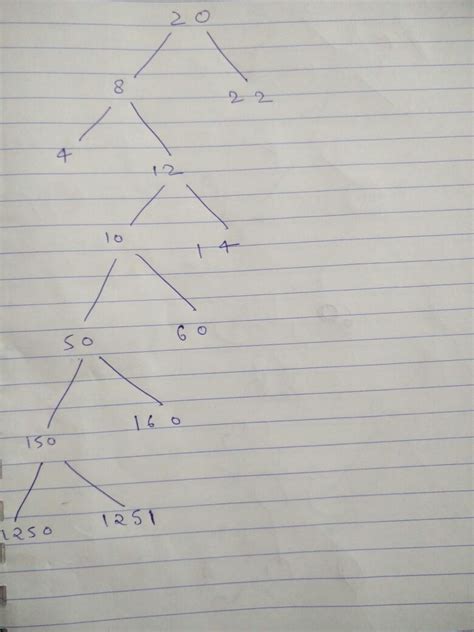 20
8 22
4 12
10 14
50 60
150 160
1250 1251